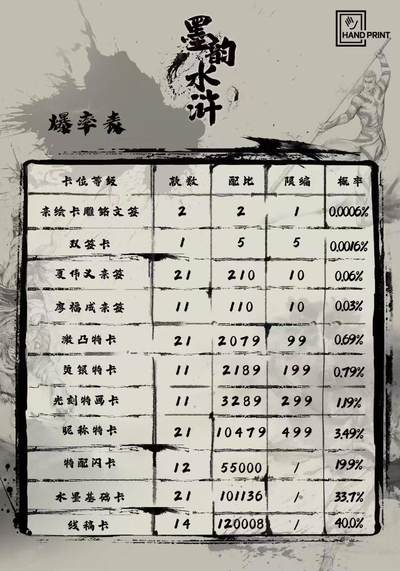 墨韵水浒
HAND PRINT
爆率表
卡位等级 款数 配比 限编 概率
亲绘卡雕铭文签 2 2 1 0.0006%
双签卡 1 5 5 0.0016%
夏伟义亲签 21 210 10 0.06%
廖福成亲签 11 110 10 0.03%
微凸特卡 21 2079 99 0.69%
烫银特卡 11 2189 199 0.79%
光刻特画卡 11 3289 299 1.19%
昵称特卡 21 10479 499 3.49%
特配闪卡 12 55000 / 19.9%
水墨基础卡 21 101136 / 33.7%
线稿卡 14 120008 / 40.0%